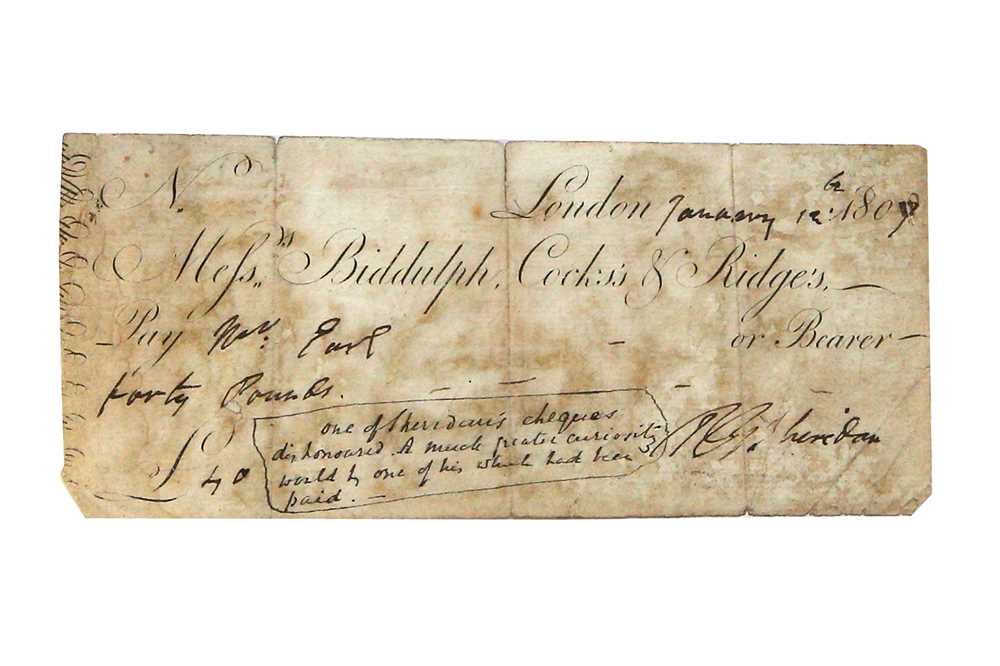 N.
London January 12th. 180
Mess.rs Biddulph, Cocks's & Ridge's,
Pay Mr. Earl or Bearer
forty Pounds.
one of Sheridan's cheques
dishonoured. A much greater curiosity
would be one of his which had been
paid.
R B Sheridan
£ 40